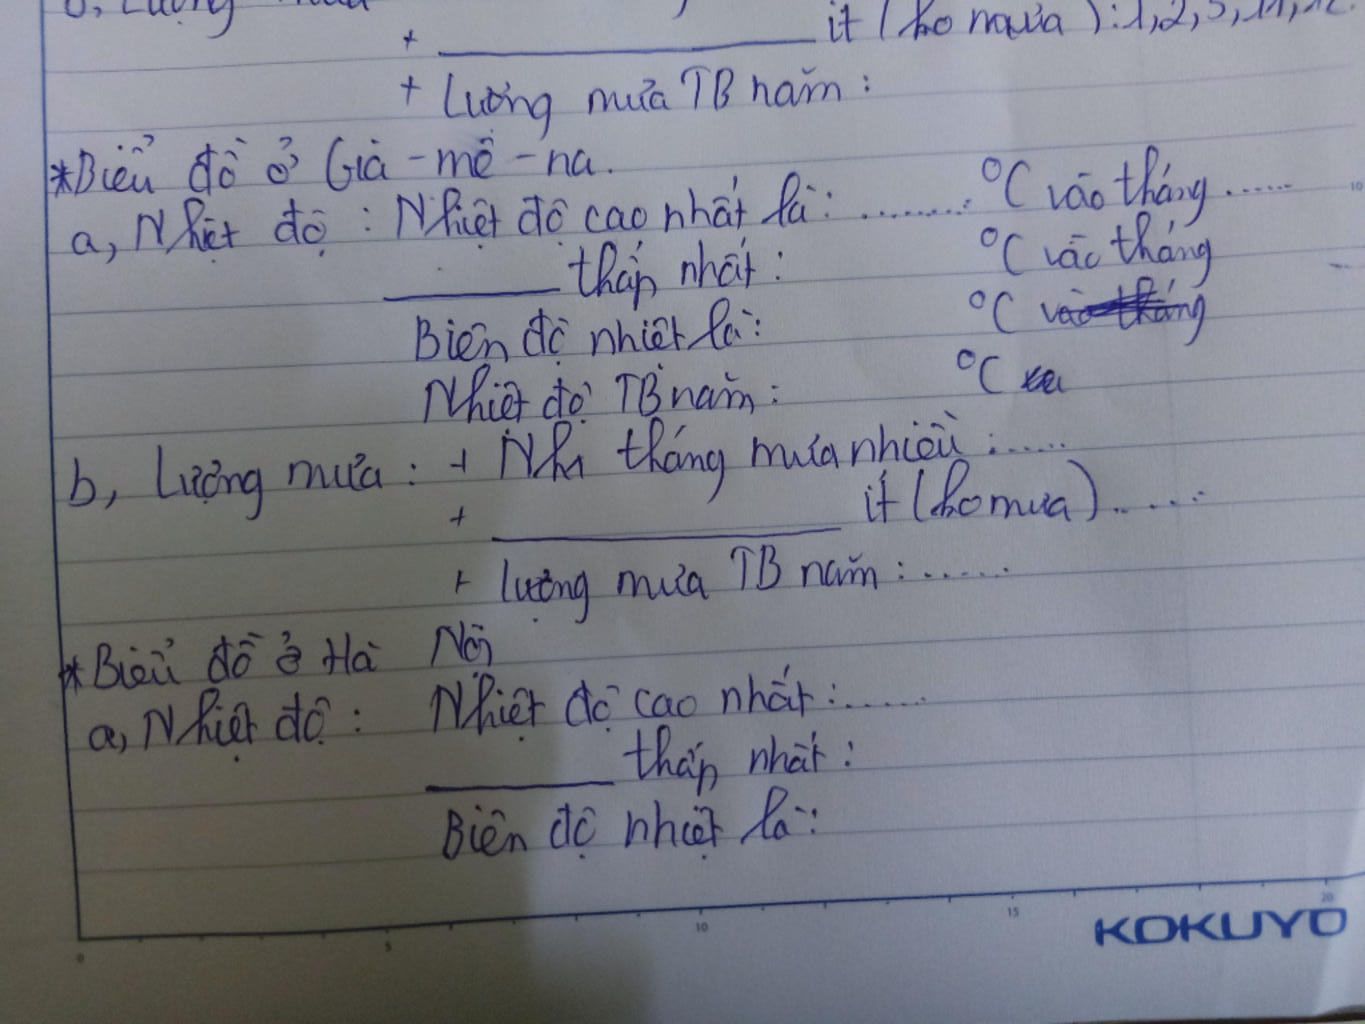 b, Lượng mưa
+ ____________ ít (ko mưa): 1, 2, 3, 11, 12.
+ Lương mưa TB năm:
*Biểu đồ ở Gia-mê-na.
a, Nhiệt độ: Nhiệt độ cao nhất là: ......... °C vào tháng ......
____________ thấp nhất: °C vào tháng
Biên độ nhiệt là: °C
Nhiệt độ TB năm: °C
b, Lượng mưa: + Nhi tháng mưa nhiều: .....
+ ____________ ít (ko mưa) ......
+ lượng mưa TB năm: ......
*Biểu đồ ở Hà Nội
a, Nhiệt độ: Nhiệt độ cao nhất: ......
____________ thấp nhất:
Biên độ nhiệt là:
0 5 10 15 20
10
KOKUYO